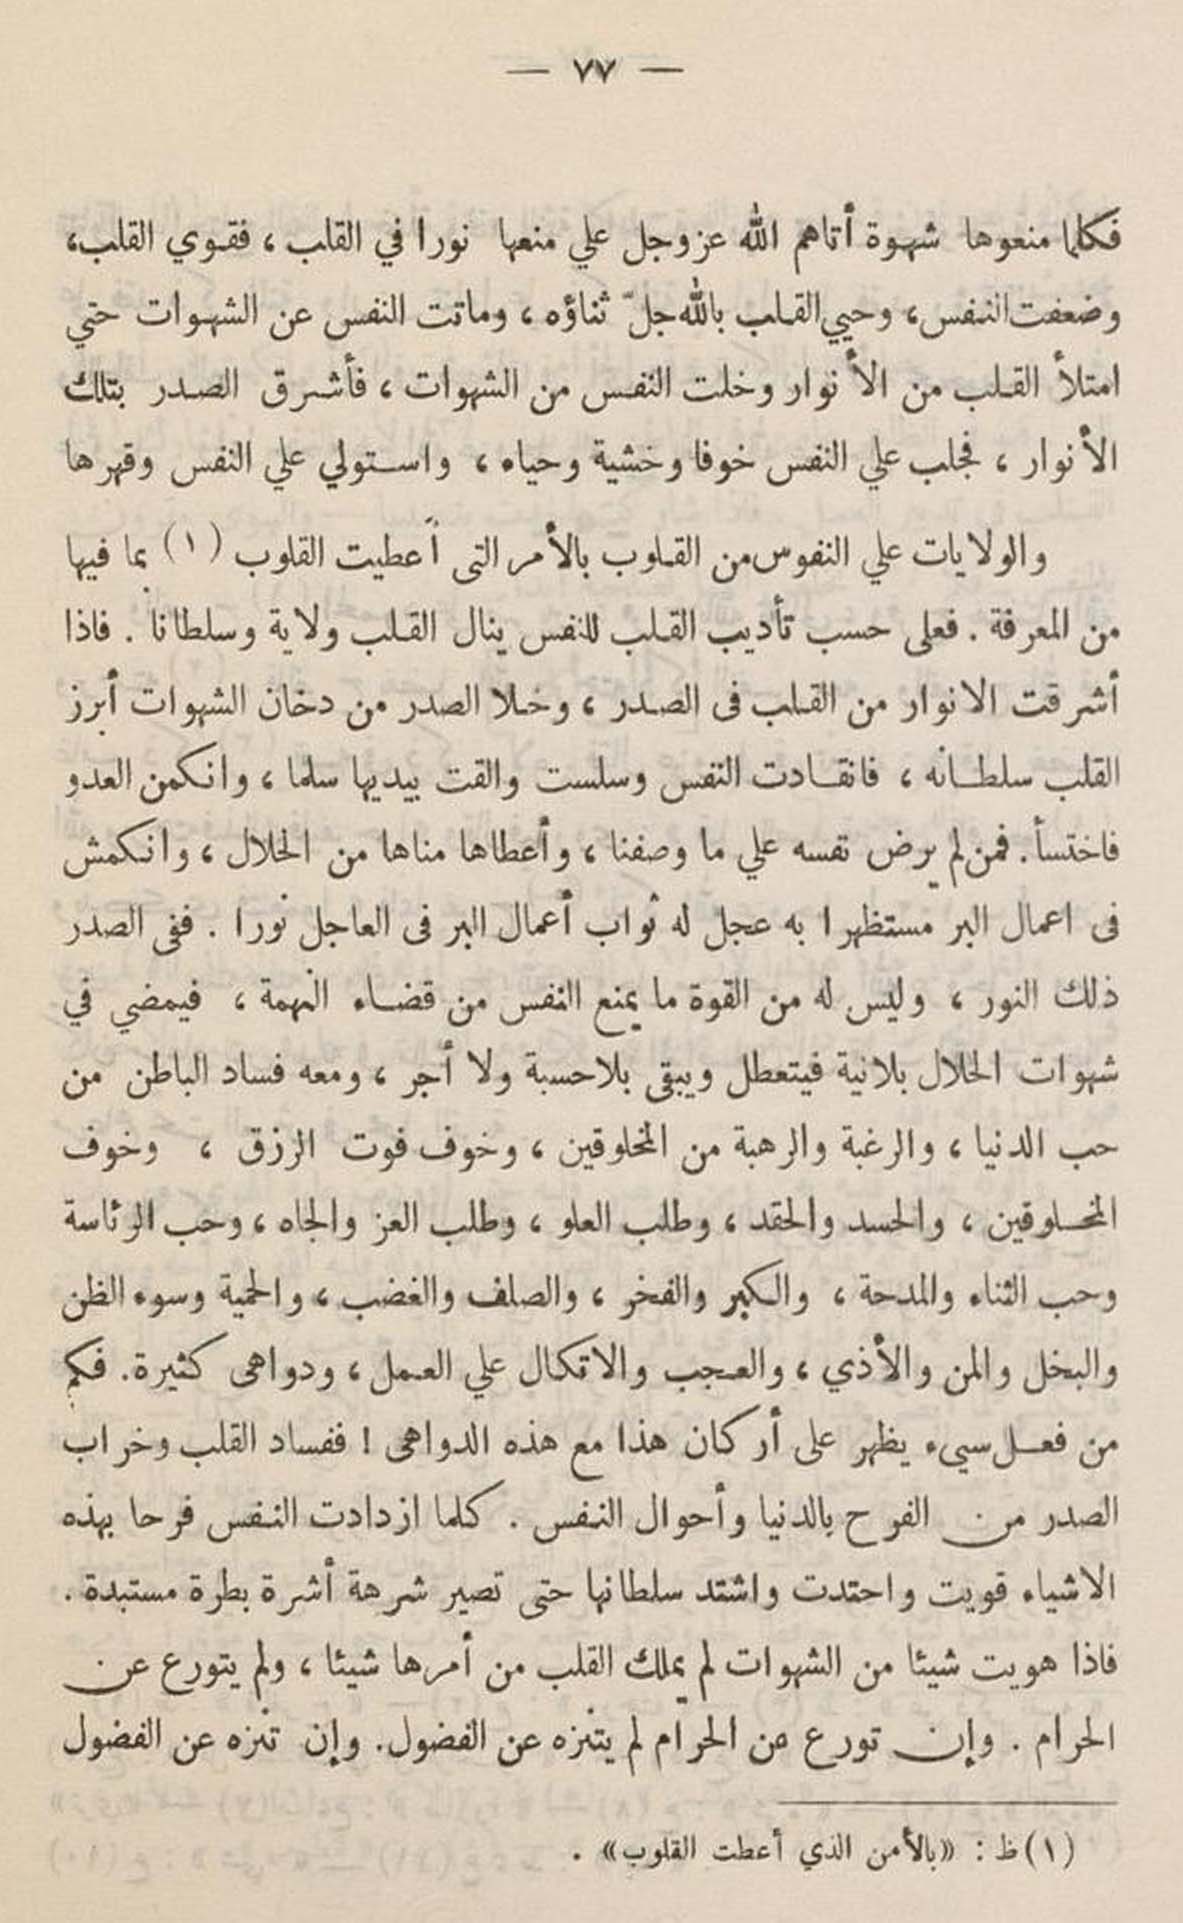 — ٧٧ —
فكلما منعوها شهوة أتاهم الله عز وجل علي منعها نورا في القلب ، فقوي القلب،
وضعفت النفس، وحيي القلب بالله جلّ ثناؤه ، وماتت النفس عن الشهوات حتي
امتلأ القلب من الأنوار وخلت النفس من الشهوات ، فأشرق الصدر بتلك
الأنوار ، فجلب علي النفس خوفا وخشية وحياء ، واستولي علي النفس وقهرها
والولايات علي النفوس من القلوب بالأمر التى أعطيت القلوب (١) بما فيها
من المعرفة . فعلى حسب تأديب القلب للنفس ينال القلب ولاية وسلطانا . فاذا
أشرقت الانوار من القلب فى الصدر ، وخلا الصدر من دخان الشهوات أبرز
القلب سلطانه ، فانقادت النفس وسلست والقت بيديها سلما ، وانكمن العدو
فاختسأ. فمن لم يرض نفسه علي ما وصفنا ، وأعطاها مناها من الحلال ، وانكمش
فى اعمال البر مستظهرا به عجل له ثواب أعمال البر فى العاجل نورا . ففى الصدر
ذلك النور ، وليس له من القوة ما يمنع النفس من قضاء النهمة ، فيمضي في
شهوات الحلال بلانية فيتعطل ويبقى بلاحسبة ولا أجر ، ومعه فساد الباطن من
حب الدنيا ، والرغبة والرهبة من المخلوقين ، وخوف فوت الرزق ، وخوف
المخلوقين ، والحسد والحقد ، وطلب العلو ، وطلب العز والجاه ، وحب الرئاسة
وحب الثناء والمدحة ، والكبر والفخر ، والصلف والغضب ، والحمية وسوء الظن
والبخل والمن والأذي ، والعجب والاتكال علي العمل ، ودواهى كثيرة. فكم
من فعل سيىء يظهر على أركان هذا مع هذه الدواهى ! ففساد القلب وخراب
الصدر من الفرح بالدنيا وأحوال النفس . كلما ازدادت النفس فرحا بهذه
الاشياء قويت واحتدت واشتد سلطانها حتى تصير شرهة أشرة بطرة مستبدة .
فاذا هويت شيئا من الشهوات لم يملك القلب من أمرها شيئا ، ولم يتورع عن
الحرام . وإن تورع عن الحرام لم يتنزه عن الفضول. وإن تنزه عن الفضول
(١) ظ : «بالأمن الذي أعطت القلوب» .